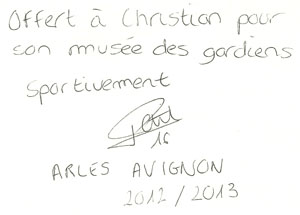 Offert à Christian pour
son musée des gardiens
Sportivement
16
ARLES AVIGNON
2012 / 2013